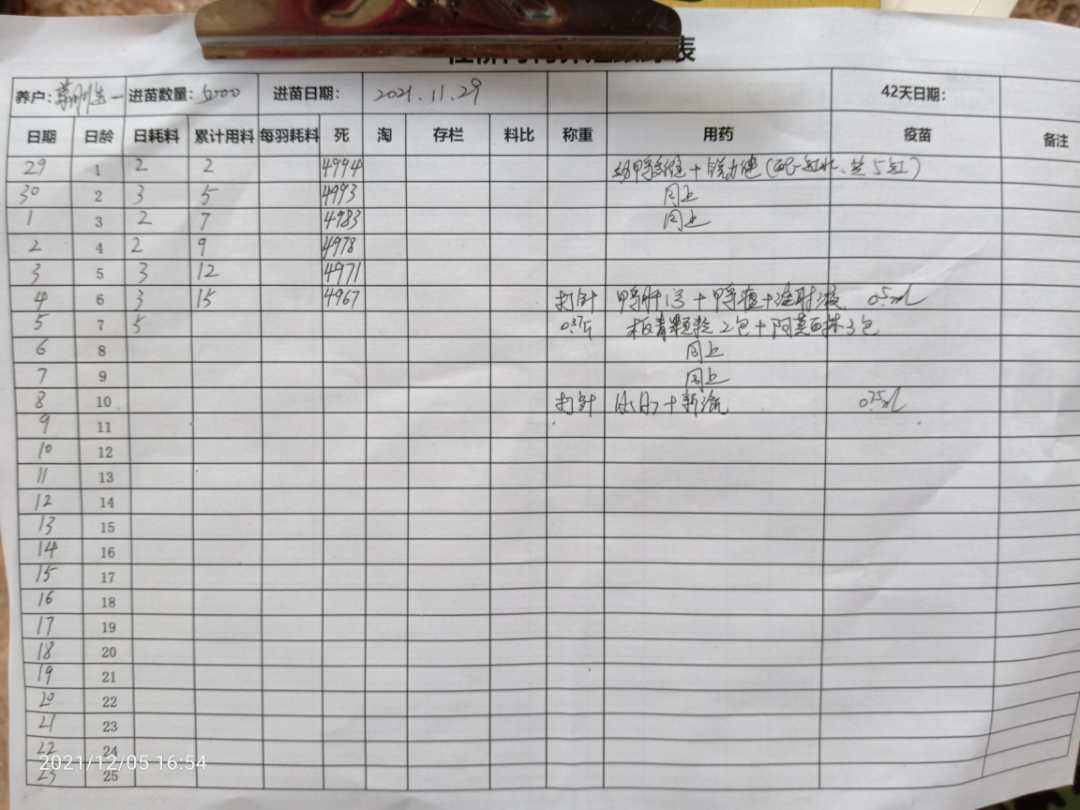 表
养户: 进苗数量: 5000 进苗日期: 2021.11.29 42天日期:
日期 日龄 日耗料 累计用料 每羽耗料 死 淘 存栏 料比 称重 用药 疫苗 备注
29 1 2 2 4994
30 2 3 5 4993 同上
1 3 2 7 4983 同上
2 4 2 9 4978
3 5 3 12 4971
4 6 3 15 4967 打针 鸭肝 + 鸭 + 注射液 0.5ml
5 7 5 板青颗粒 2包 + 阿莫西林 3包
6 8 同上
7 9 同上
8 10 打针 + 新流
9 11
10 12
11 13
12 14
13 15
14 16
15 17
16 18
17 19
18 20
19 21
20 22
21 23
22 24
23 25
2021/12/05 16:54